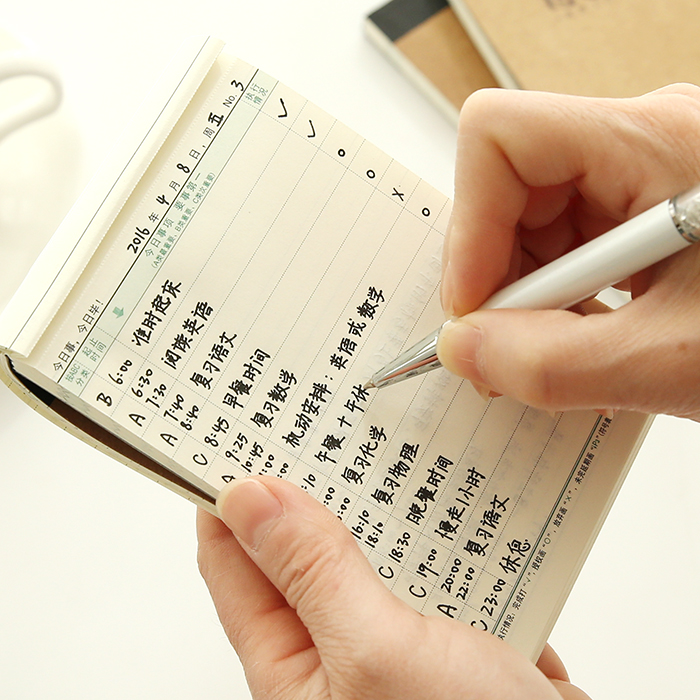 今日事，今日毕！ 2016 年 4 月 8 日，周五 No. 3
按ABC分类 起止时间 今日事项 要事第一 执行情况
(A类最重要，B类重要，C类次重要)
B 6:00 准时起床 ✓
A 6:30 7:30 阅读英语 ✓
A 7:40 8:40 复习语文 o
C 8:45 早餐时间 o
A 9:25 10:45 复习数学 x
:00 机动安排：英语或数学 o
:10 午餐 十午休
:00 :00 复习化学
16:10 18:10 复习物理
C 18:30 晚餐时间
C 19:00 慢走1小时
A 20:00 22:00 复习语文
C 23:00 休息
执行情况：完成打“√”，授权画“O”，放弃画“×”，未完延期画